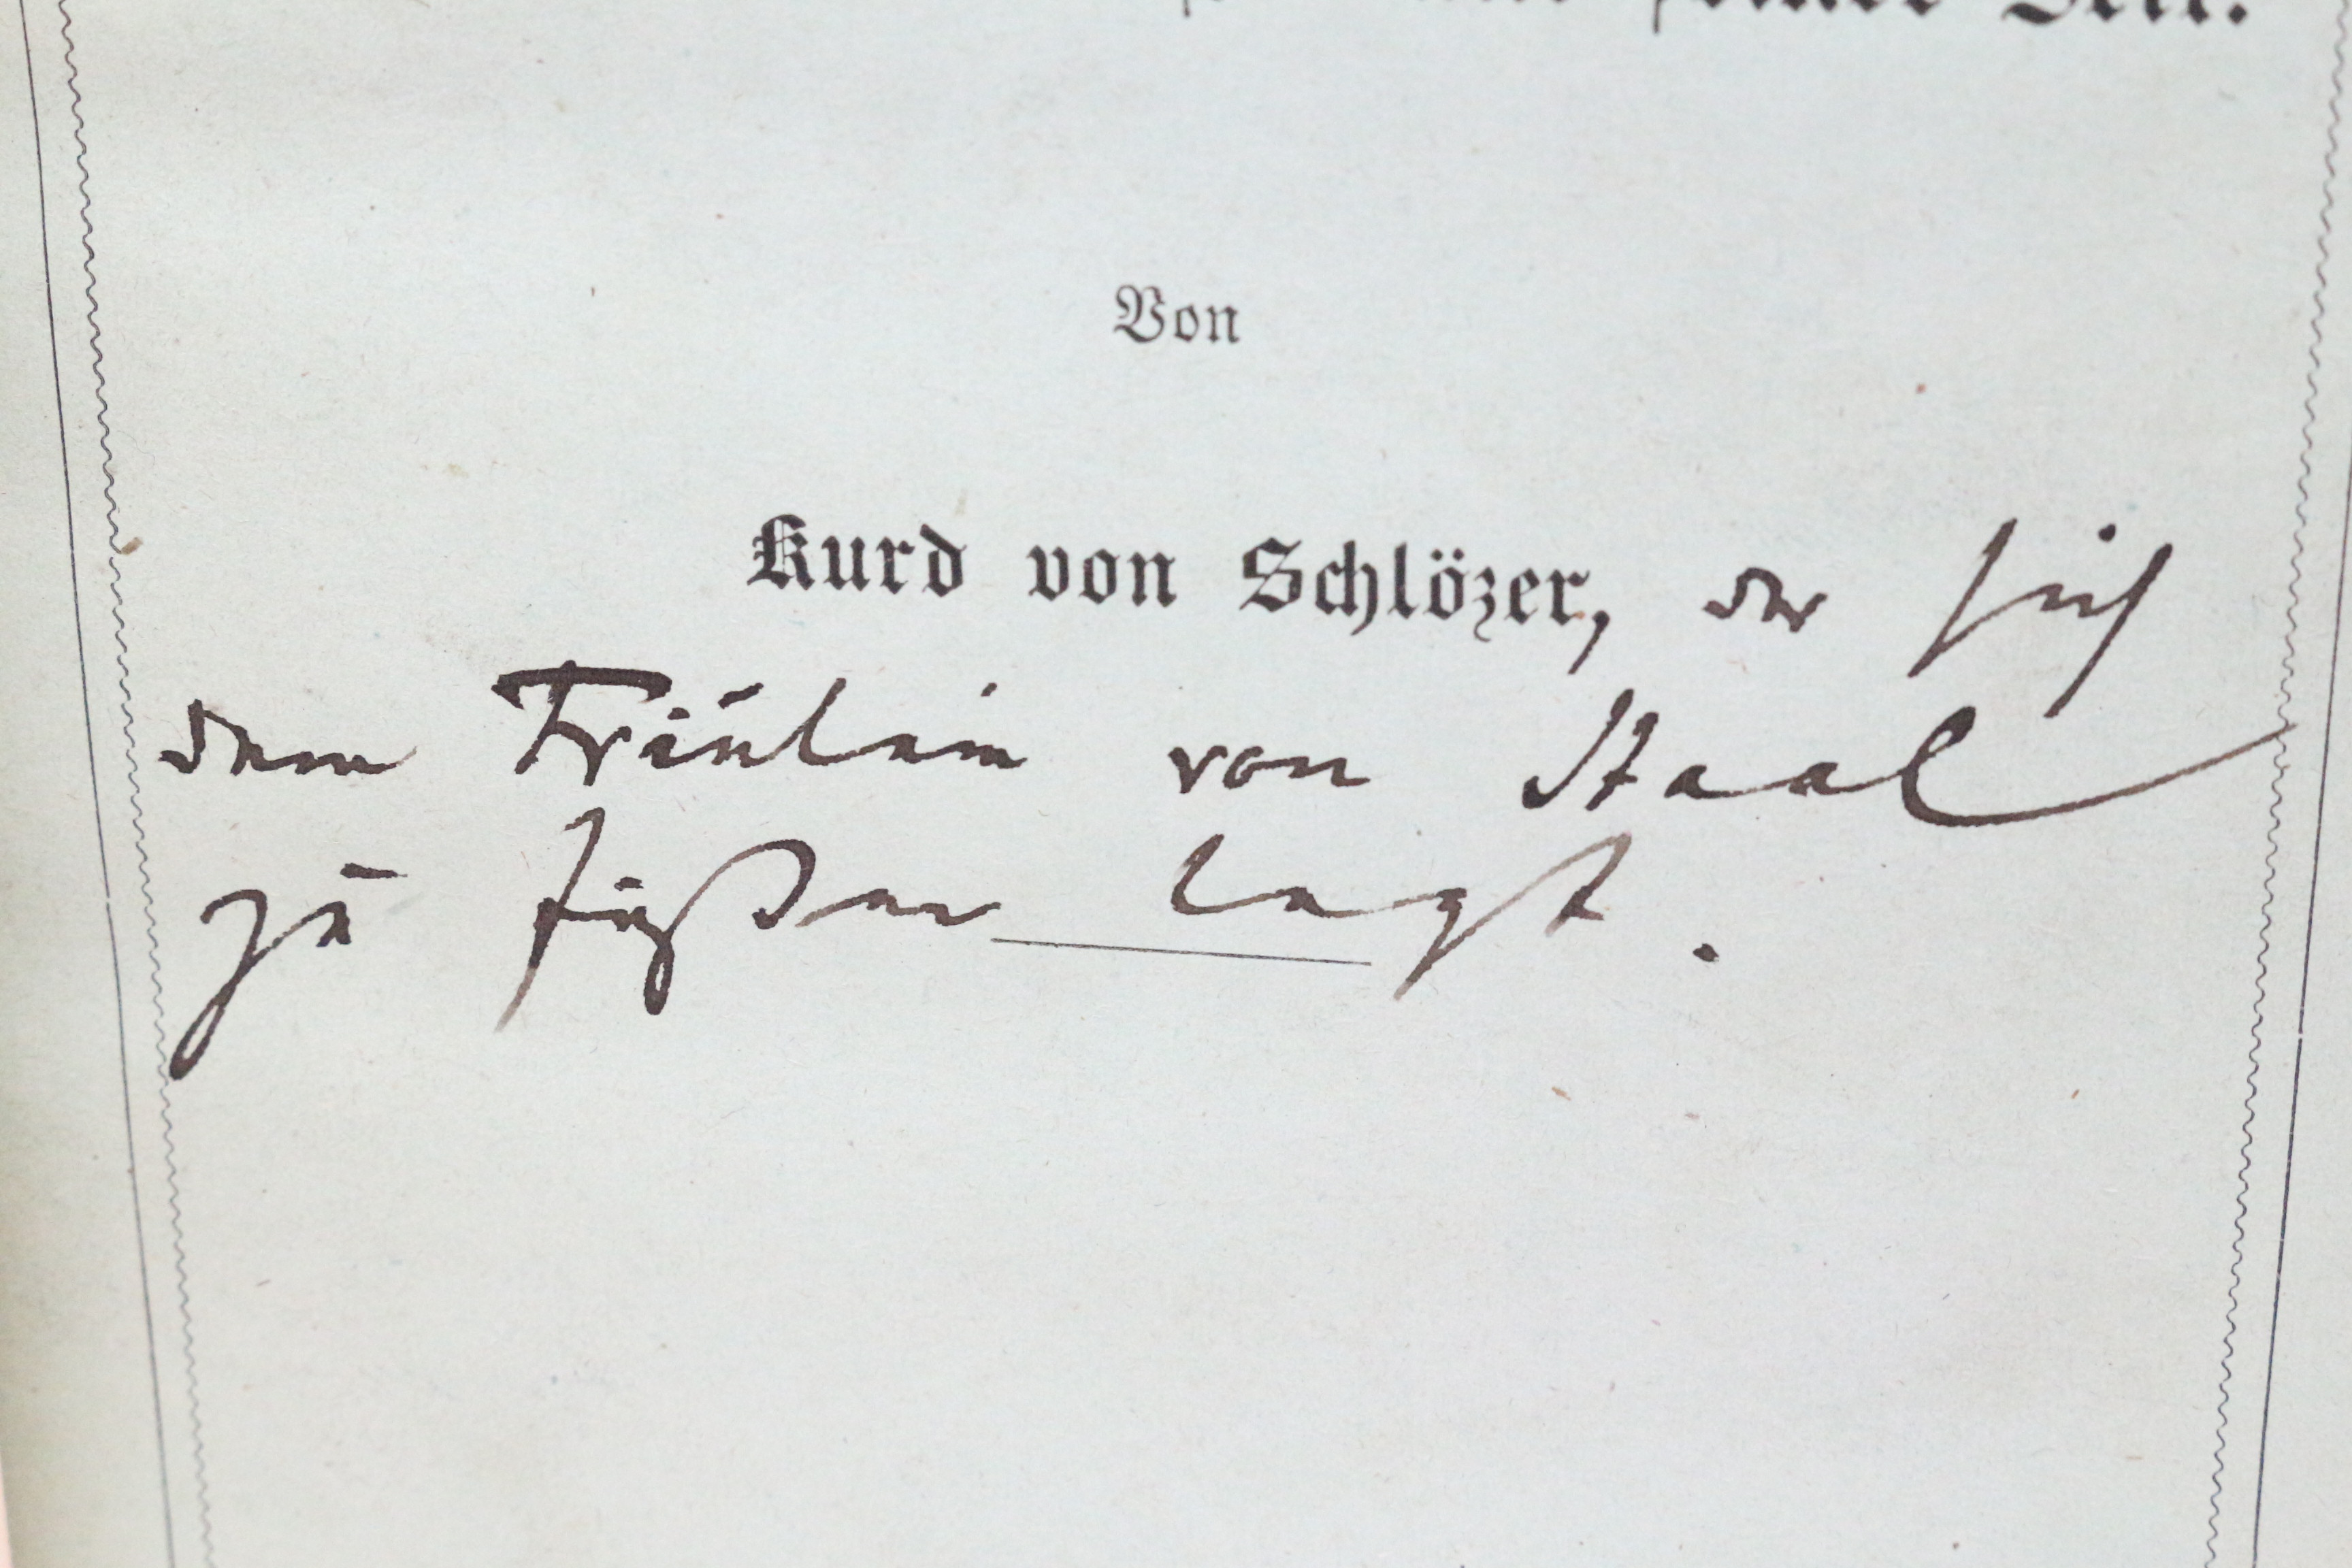 seiner Zeit.
Von
Kurd von Schlözer, der sich
dem Fräulein von Staal
zu Füßen legt.